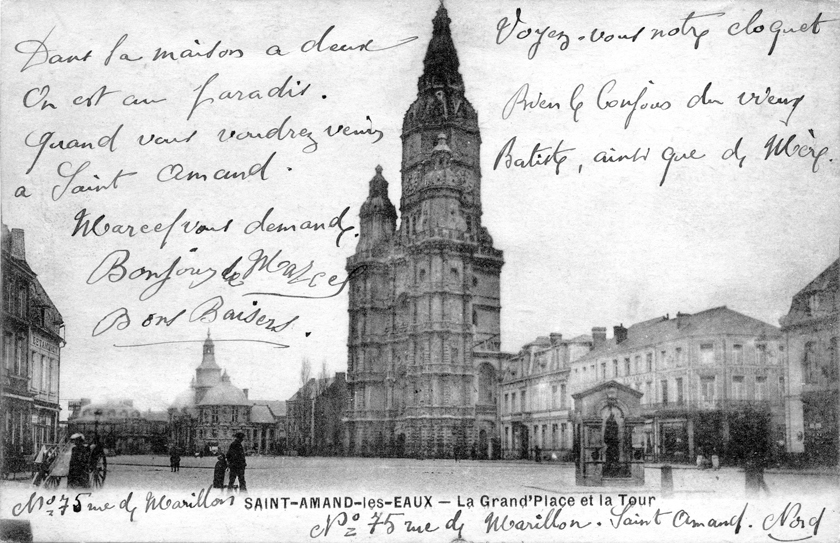 Dans la maison a deux
On est au paradis.
Quand vous voudrez venir
a Saint Amand.
Marcel vous demande.
Bonjour de Marcel
Bons Baisers.
Voyez-vous notre cloquet
Bien le Bonjour du vieux
Batiste, ainsi que de Mère.
No 75 rue de Marillon
SAINT-AMAND-les-EAUX — La Grand'Place et la Tour
No 75 rue de Marillon. Saint Amand. Nord